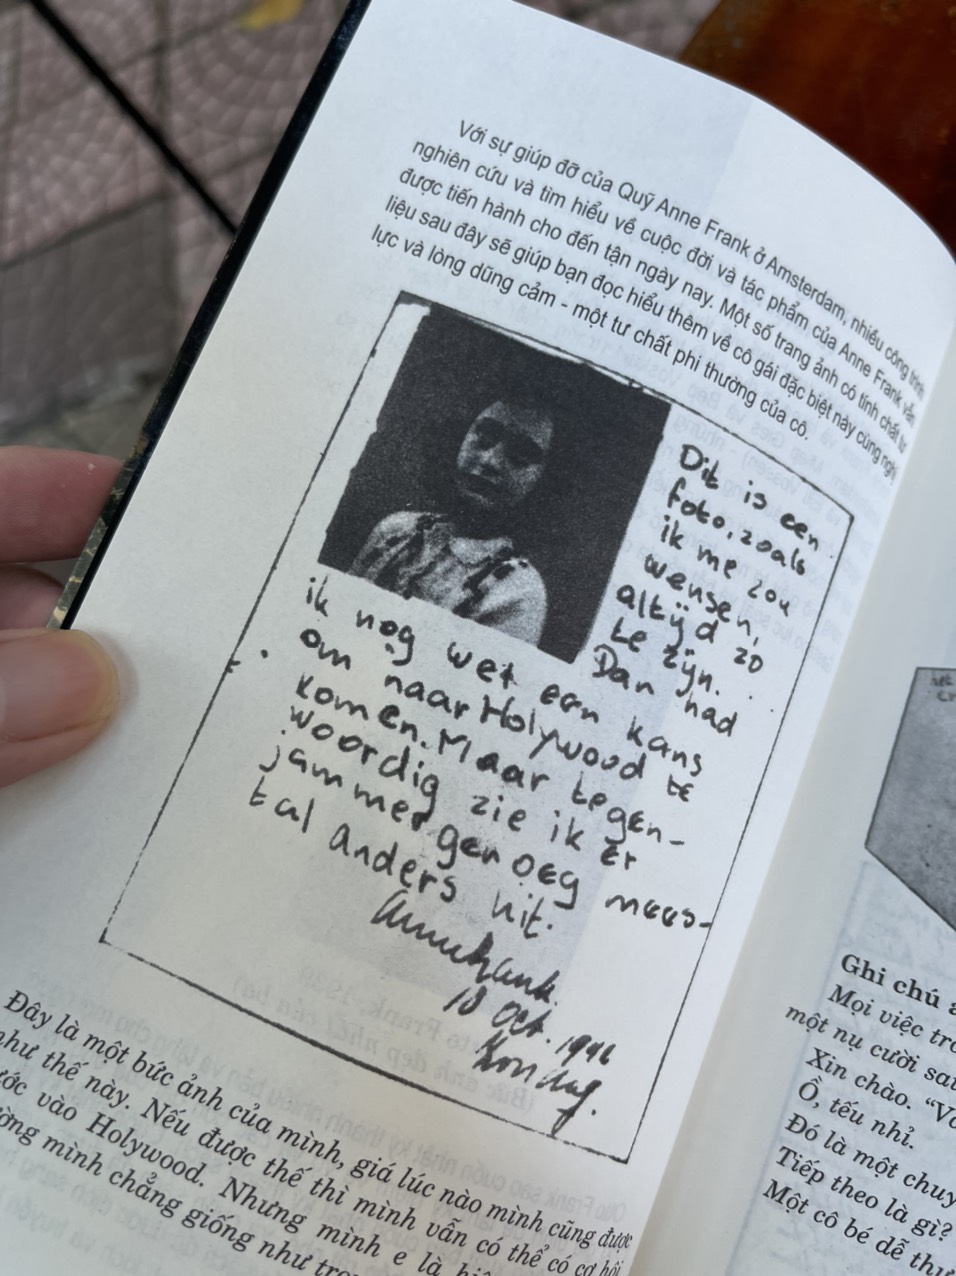 Với sự giúp đỡ của Quỹ Anne Frank ở Amsterdam, nhiều công trình
nghiên cứu và tìm hiểu về cuộc đời và tác phẩm của Anne Frank vẫn
được tiến hành cho đến tận ngày nay. Một số trang ảnh có tính chất tư
liệu sau đây sẽ giúp bạn đọc hiểu thêm về cô gái đặc biệt này cùng nghị
lực và lòng dũng cảm - một tư chất phi thường của cô.
Dit is een
foto, zoals
ik me zou
wensen,
altijd zo
te zijn.
Dan had
ik nog wel een kans
om naar Holywood te
komen. Maar tegen-
woordig zie ik er
jammer genoeg mees-
tal anders uit.
Anne Frank.
18 Oct. 1942
Zondag.
Đây là một bức ảnh của mình, giá lúc nào mình cũng được
như thế này. Nếu được thế thì mình vẫn có thể có cơ hội
vào Holywood. Nhưng mình e là
mình chẳng giống như
Ghi chú
Mọi việc
một nụ cười
Xin chào.
Ồ, tếu nhỉ.
Đó là một
Tiếp theo là gì?
Một cô bé dễ